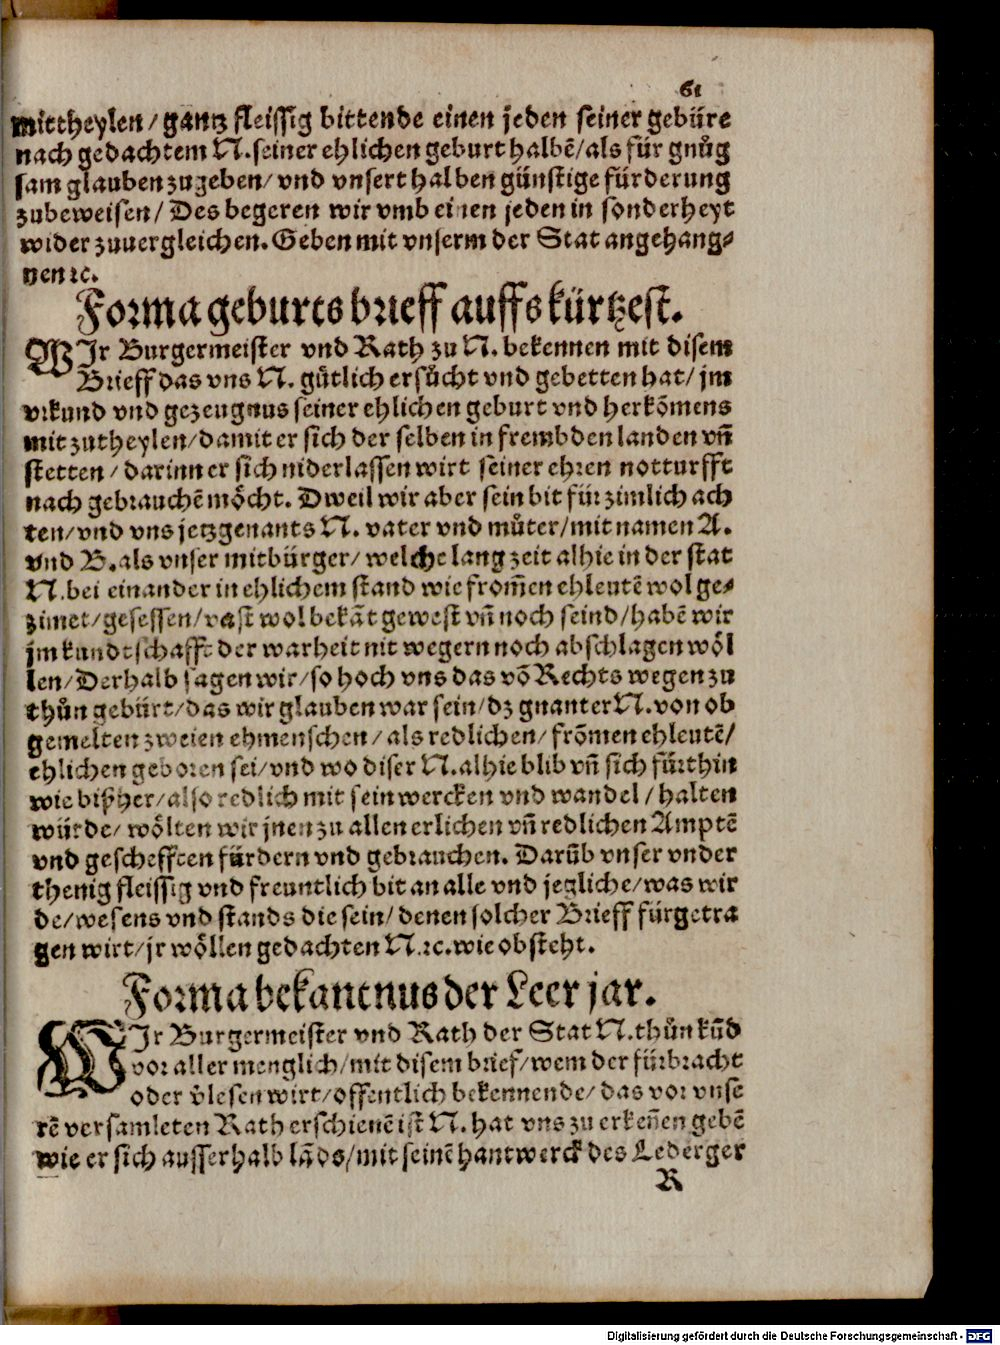 61
mittheylen/ gantz fleissig bittende einen jeden seiner gebüre
nach gedachtem N. seiner ehlichen geburt halbẽ/ als für gnůg
sam glauben zugeben/ vnd vnsert halben günstige fürderung
zubeweisen/ Des begeren wir vmb einen jeden in sonderheyt
wider zuuergleichen. Geben mit vnserm der Stat angehang-
nen ꝛc.
Forma geburts brieff auffs kürtzest.
WJr Burgermeister vnd Rath zu N. bekennen mit disem
Brieff das vns N. gütlich ersůcht vnd gebetten hat/ jm
vrkund vnd gezeugnus seiner ehlichen geburt vnd herkõmens
mit zutheylen/ damit er sich der selben in frembden landen vñ
stetten/ darinn er sich niderlassen wirt seiner ehren notturfft
nach gebrauchẽ möcht. Dweil wir aber sein bit für zimlich ach
ten/ vnd vns jetzgenants N. vater vnd můter/ mit namen A.
vnd B. als vnser mitbürger/ welche lang zeit alhie in der stat
N. bei einander in ehlichem stand wie from̃en ehleutẽ wol ge-
zimet/ gesessen/ vast wol bekãt gewest vñ noch seind/ habẽ wir
jm kundtschafft der warheit nit wegern noch abschlagen wöl
len/ Derhalb sagen wir/ so hoch vns das võ Rechts wegen zu
thůn gebürt/ das wir glauben war sein/ dz gnanter N. von ob
gemelten zweien ehmenschen/ als redlichen/ frõmen ehleutẽ/
ehlichen geboren sei/ vnd wo diser N. alhie blib vñ sich fürthin
wie bißher/ also redlich mit sein wercken vnd wandel/ halten
würde/ wölten wir jnen zu allen erlichen vñ redlichen Amptẽ
vnd geschefften fürdern vnd gebrauchen. Darũb vnser vnder
thenig fleissig vnd freuntlich bit an alle vnd jegliche/ was wir
de/ wesens vnd stands die sein/ denen solcher Brieff fürgetra
gen wirt/ jr wöllen gedachten N. ꝛc. wie obsteht.
Forma bekantnus der Leer jar.
WJr Burgermeister vnd Rath der Stat N. thůn kũd
vor aller menglich/ mit disem brief/ wem der fürbracht
oder v̈lesen wirt/ offentlich bekennende/ das vor vnse
rẽ versamleten Rath erschienẽ ist N. hat vns zu erkeñen gebẽ
wie er sich ausserhalb lãds/ mit seinẽ hantwerck des Lederger
R
Digitalisierung gefördert durch die Deutsche Forschungsgemeinschaft - DFG